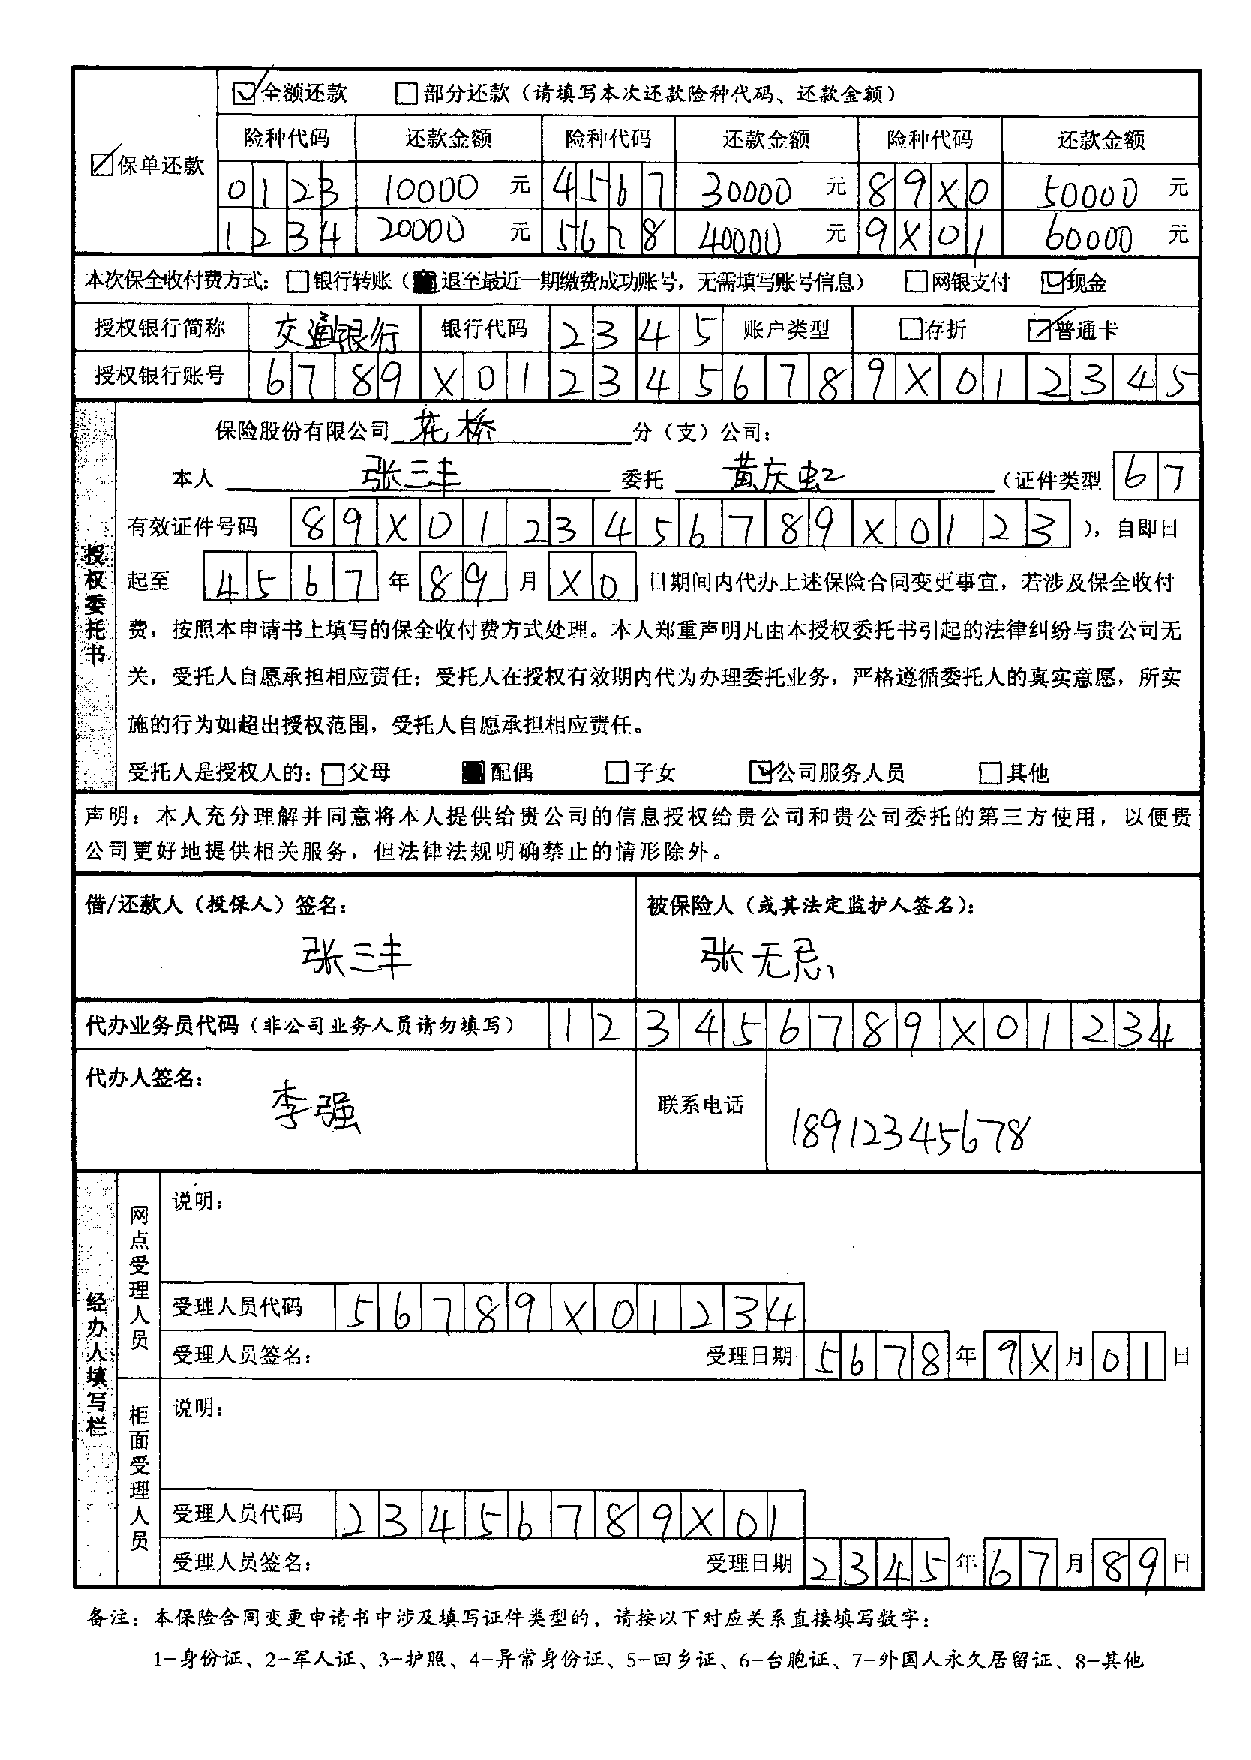 ☑保单还款 ☑全额还款 ☐部分还款（请填写本次还款险种代码、还款金额）
险种代码 还款金额 险种代码 还款金额 险种代码 还款金额
0123 10000 元 4567 30000 元 89X0 50000 元
1234 20000 元 5678 40000 元 9X01 60000 元
本次保全收付费方式：☐银行转账（■退至最近一期缴费成功账号，无需填写账号信息） ☐网银支付 ☑现金
授权银行简称 交通银行 银行代码 2345 账户类型 ☐存折 ☑普通卡
授权银行账号 6789X0123456789X012345
授权委托书
保险股份有限公司 花桥 分（支）公司：
本人 张三丰 委托 黄庆虹 （证件类型 67
有效证件号码 89X0123456789X0123 ），自即日
起至 4567 年 89 月 X0 日期间内代办上述保险合同变更事宜，若涉及保全收付
费，按照本申请书上填写的保全收付费方式处理。本人郑重声明凡由本授权委托书引起的法律纠纷与贵公司无
关，受托人自愿承担相应责任；受托人在授权有效期内代为办理委托业务，严格遵循委托人的真实意愿，所实
施的行为如超出授权范围，受托人自愿承担相应责任。
受托人是授权人的：☐父母 ■配偶 ☐子女 ☑公司服务人员 ☐其他
声明：本人充分理解并同意将本人提供给贵公司的信息授权给贵公司和贵公司委托的第三方使用，以便贵
公司更好地提供相关服务，但法律法规明确禁止的情形除外。
借/还款人（投保人）签名： 被保险人（或其法定监护人签名）：
张三丰 张无忌
代办业务员代码（非公司业务人员请勿填写） 123456789X01234
代办人签名： 李强 联系电话 18912345678
经办人填写栏
网点受理人员
说明：
受理人员代码 56789X01234
受理人员签名： 受理日期 5678 年 9X 月 01 日
柜面受理人员
说明：
受理人员代码 23456789X01
受理人员签名： 受理日期 2345 年 67 月 89 日
备注：本保险合同变更申请书中涉及填写证件类型的，请按以下对应关系直接填写数字：
1-身份证、2-军人证、3-护照、4-异常身份证、5-回乡证、6-台胞证、7-外国人永久居留证、8-其他